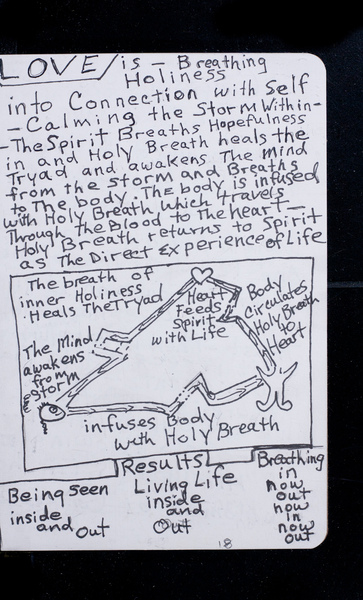 LOVE is - Breathing
Holiness
into Connection with Self
- Calming the Storm Within -
- The Spirit Breaths Hopefulness
in and Holy Breath heals the
Tryad and awakens The mind
from the Storm and Breaths
to The body. The body is infused
with Holy Breath which travels
Through the Blood to The heart -
Holy Breath returns to Spirit
as The Direct Experience of Life
The breath of
inner Holiness
Heals The Tryad
Heart
Feeds
Spirit
with Life
Body
Circulates
Holy Breath
to
Heart
The Mind
awakens
from
STORM
infuses Body
with Holy Breath
Results
Being seen
inside
and Out
Living Life
inside
and
Out
Breathing
in
now
out
now
in
now
out
18